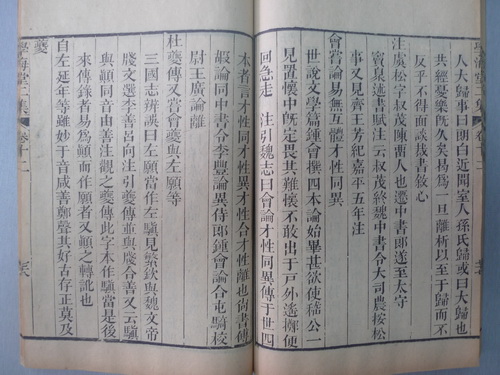 人大歸事曰朗白近聞室人孫氏歸或曰大歸也
共經憂樂旣久矣曷爲一旦離析以至于歸而不
反乎不得面談裁書敘心
注虞松字叔茂陳留人也遷中書郎遂至太守
竇臮述書賦注云叔茂終魏中書令大司農按松
事又見齊王芳紀嘉平五年注
會嘗論易無互體才性同異
世說文學篇鍾會撰四本論始畢甚欲使嵇公一
見置懷中旣定畏其難懷不敢出于戸外遙擲便
回急走　注引魏志曰會論才性同異傳于世四
本者言才性同才性異才性合才性離也尙書傅
嘏論同中書令李豐論異侍郎鍾會論合屯騎校
尉王廣論離
杜夔傳又嘗會夔與左願等
三國志辨誤曰左願當作左見繁欽與魏文帝
牋文選李善呂向注引夔傳並與牋合善又云
與顚同音由善注觀之夔傳此字本作當是後
來傳錄者易爲顚而作願者又顚之轉訛也
自左延年等雖妙于音咸善鄭聲其好古存正莫及
夔
學海堂二集
卷十二